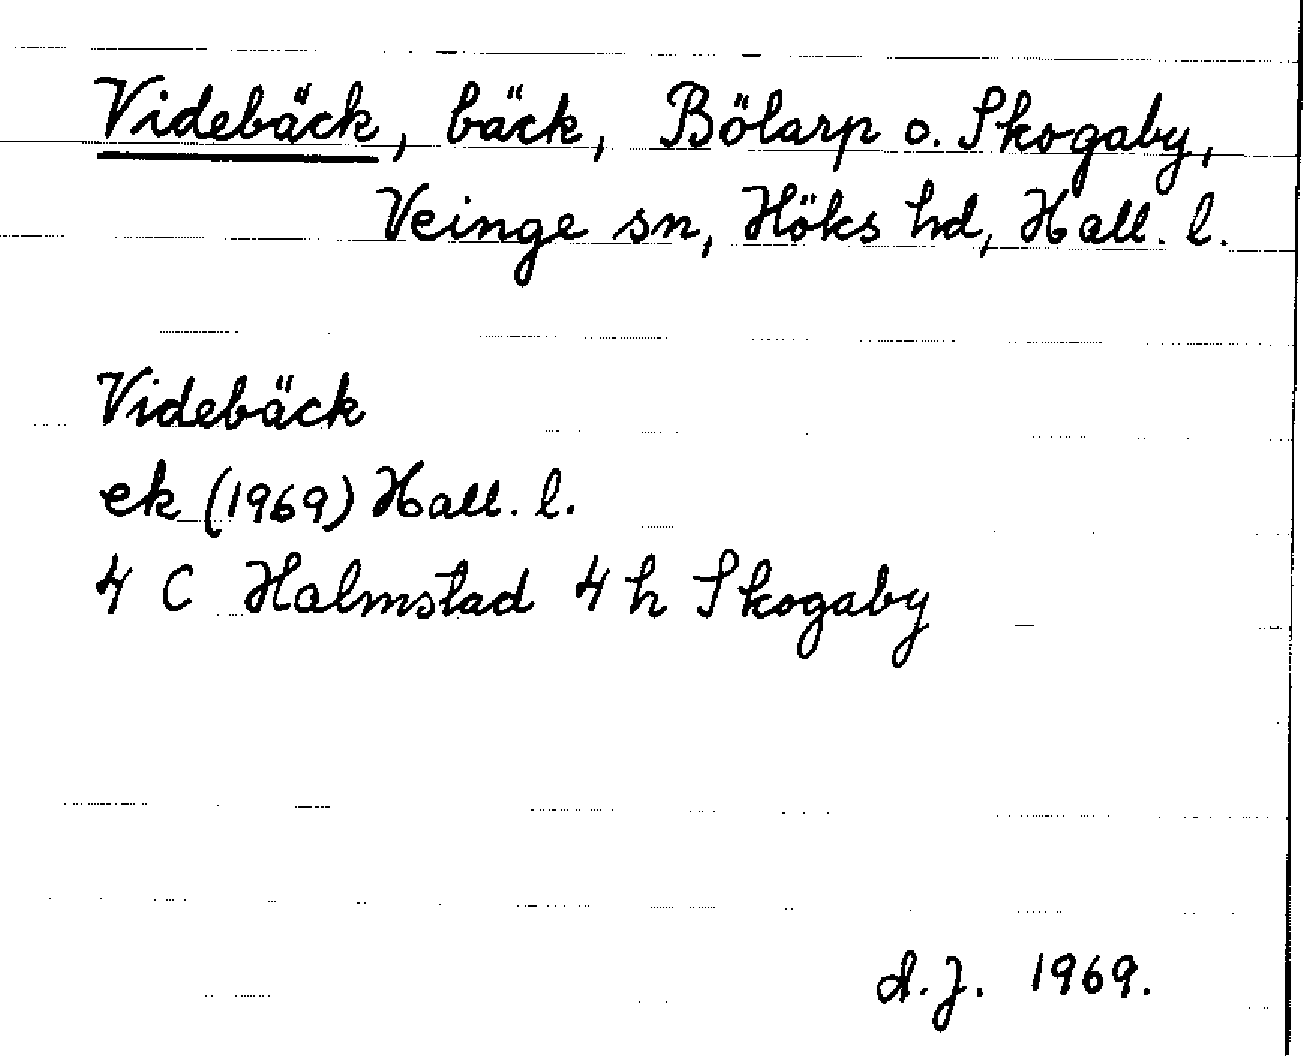 Videbäck, bäck, Bölarp o. Skogaby,
Veinge sn, Höks hd, Hall. l.
Videbäck
ek (1969) Hall. l.
4 C Halmstad 4 h Skogaby
A.J. 1969.